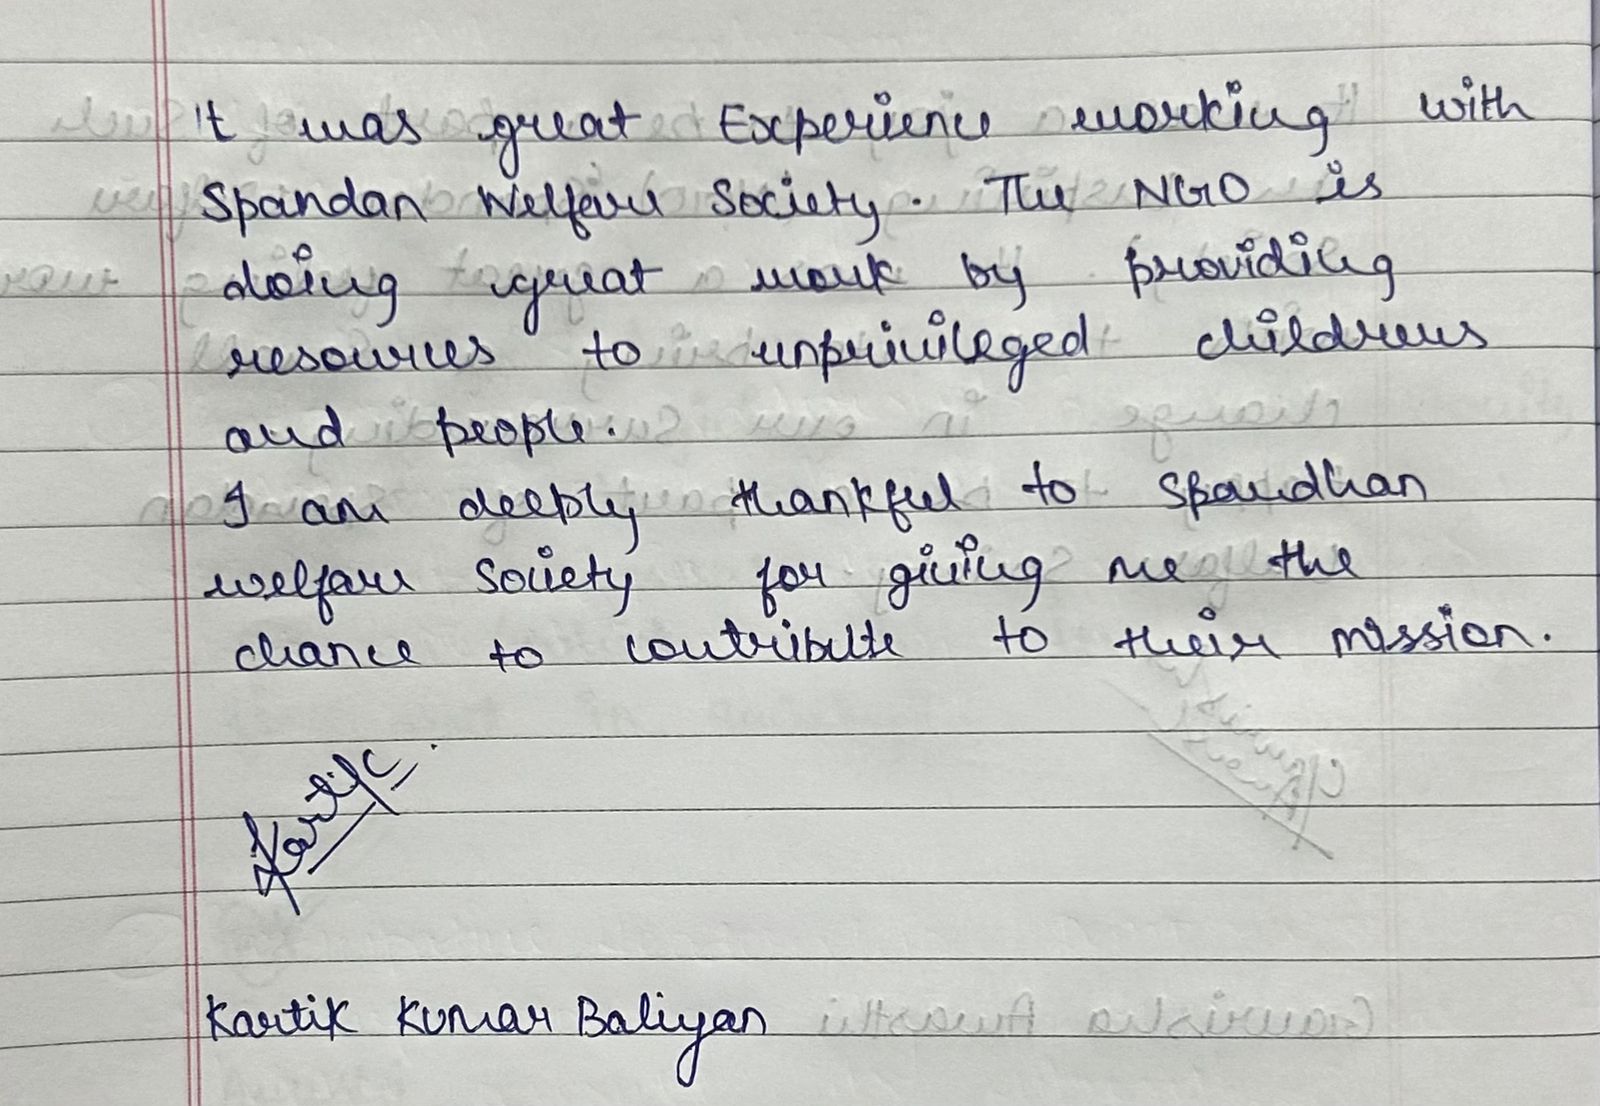 It was great Experience working with
Spandan Welfare Society. The NGO is
doing great work by providing
resources to unprivileged childrens
and people.
I am deeply thankful to Spandhan
welfare Society for giving me the
chance to contribute to their mission.
Kartik
Kartik Kumar Baliyan